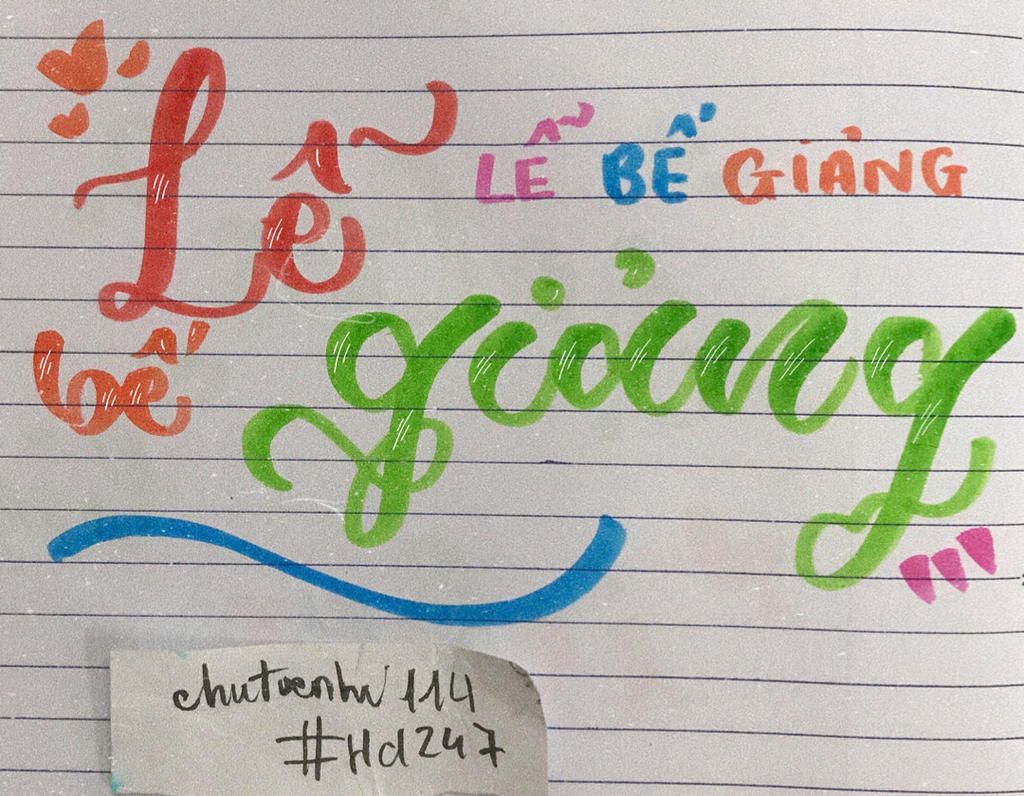 Lễ
LỄ BẾ GIẢNG
bế giảng
#Hd247